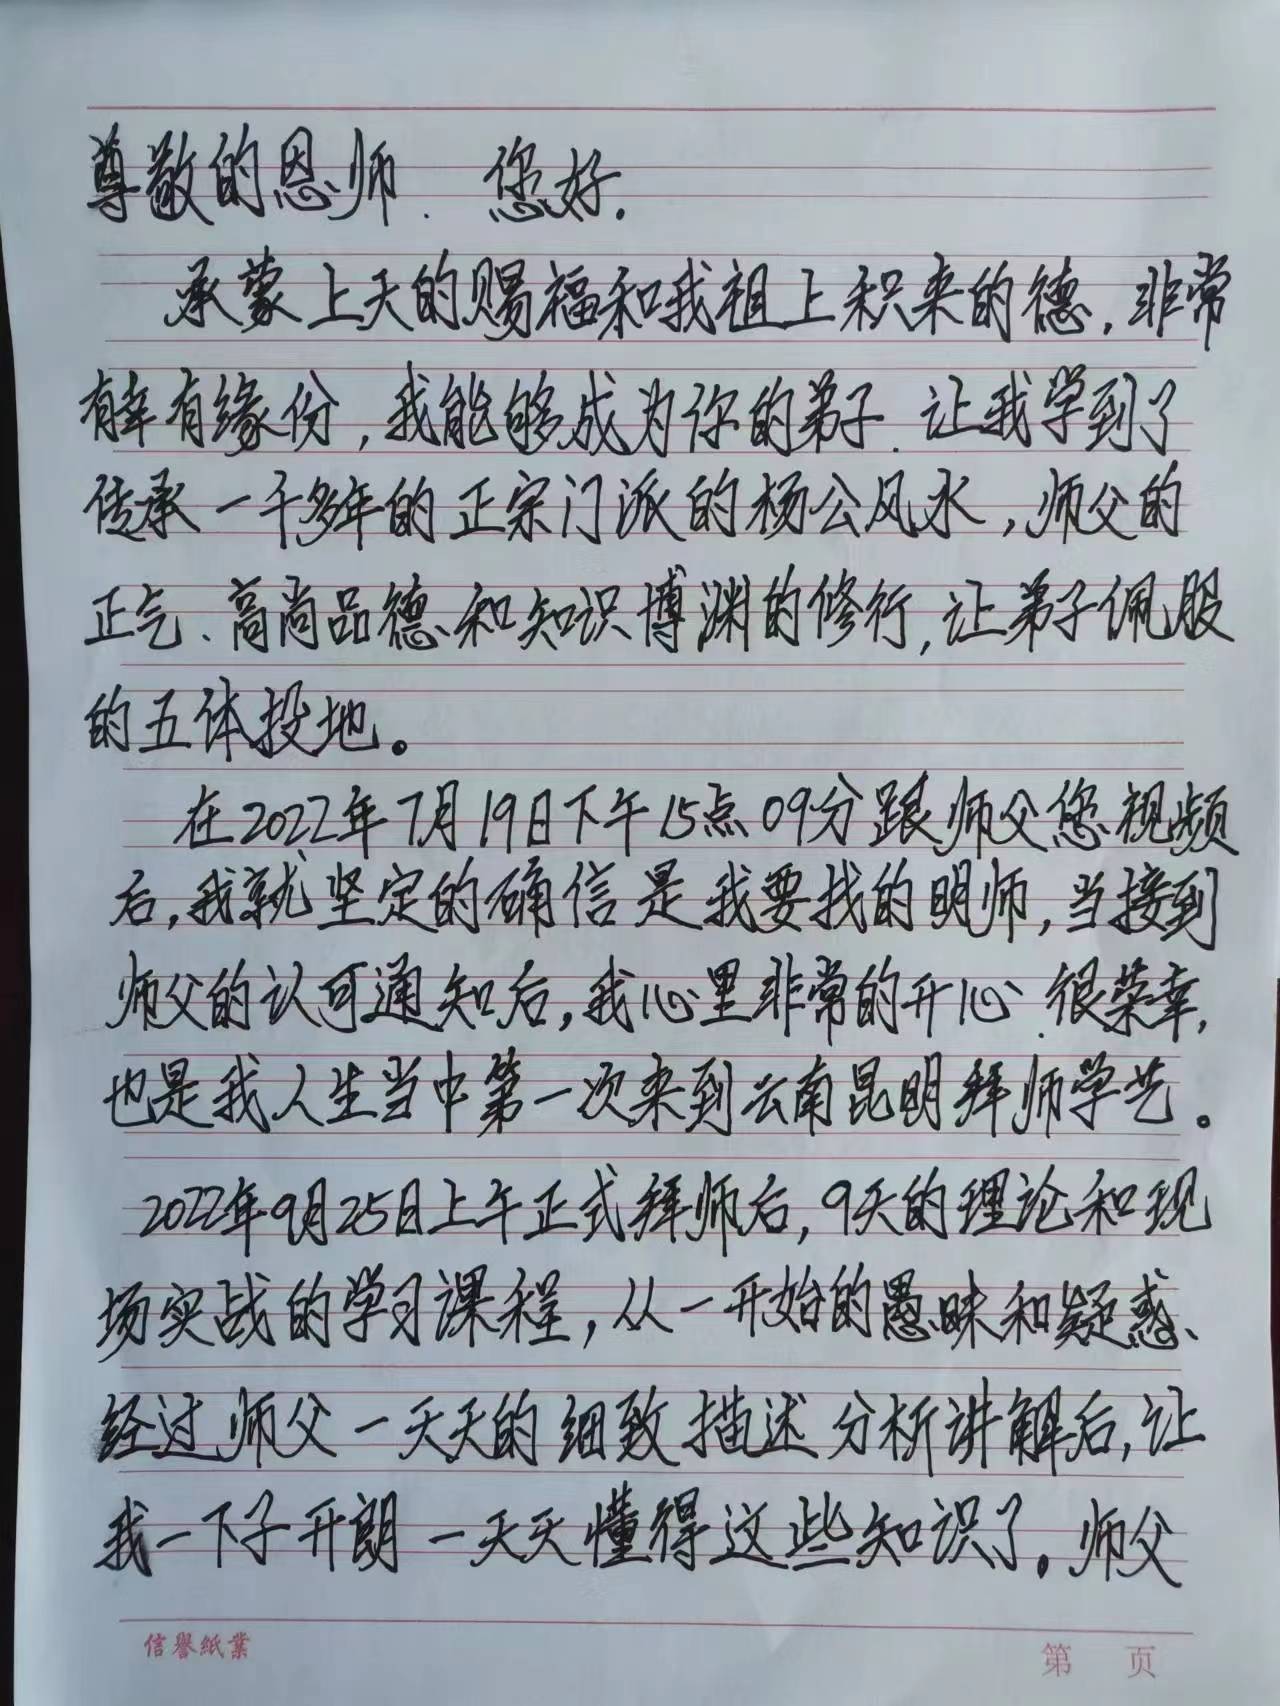 尊敬的恩师. 您好.
承蒙上天的赐福和我祖上积来的德,非常
有幸有缘份,我能够成为你的弟子.让我学到了
传承一千多年的正宗门派的杨公风水,师父的
正气、高尚品德和知识博渊的修行,让弟子佩服
的五体投地。
在2022年7月19日下午15点09分跟师父您视频
后,我就坚定的确信是我要找的明师,当接到
师父的认可通知后,我心里非常的开心.很荣幸,
也是我人生当中第一次来到云南昆明拜师学艺。
2022年9月25日上午正式拜师后,9天的理论和现
场实战的学习课程,从一开始的愚昧和疑惑、
经过师父一天天的细致描述分析讲解后,让
我一下子开朗一天天懂得这些知识了。师父
信誉紙業
第 页